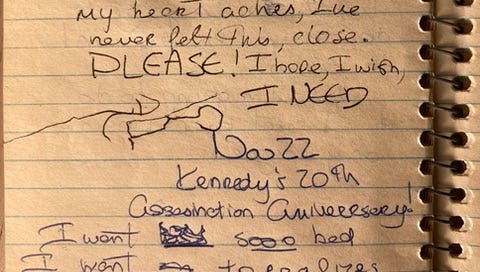 my heart aches, I've
never felt this, close.
PLEASE! I hope, I wish,
I NEED
Nov 22
Kennedy's 20th
Assasination Aniversary!
I want sooo bad
I want to realize